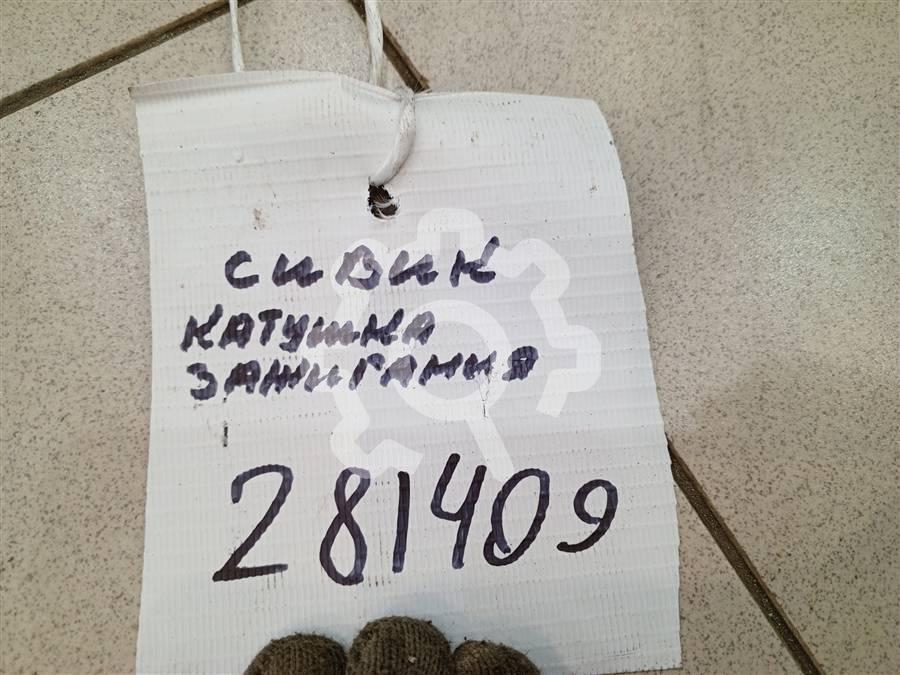 СИВИК
КАТУШКА
ЗАЖИГАНИЯ
281409